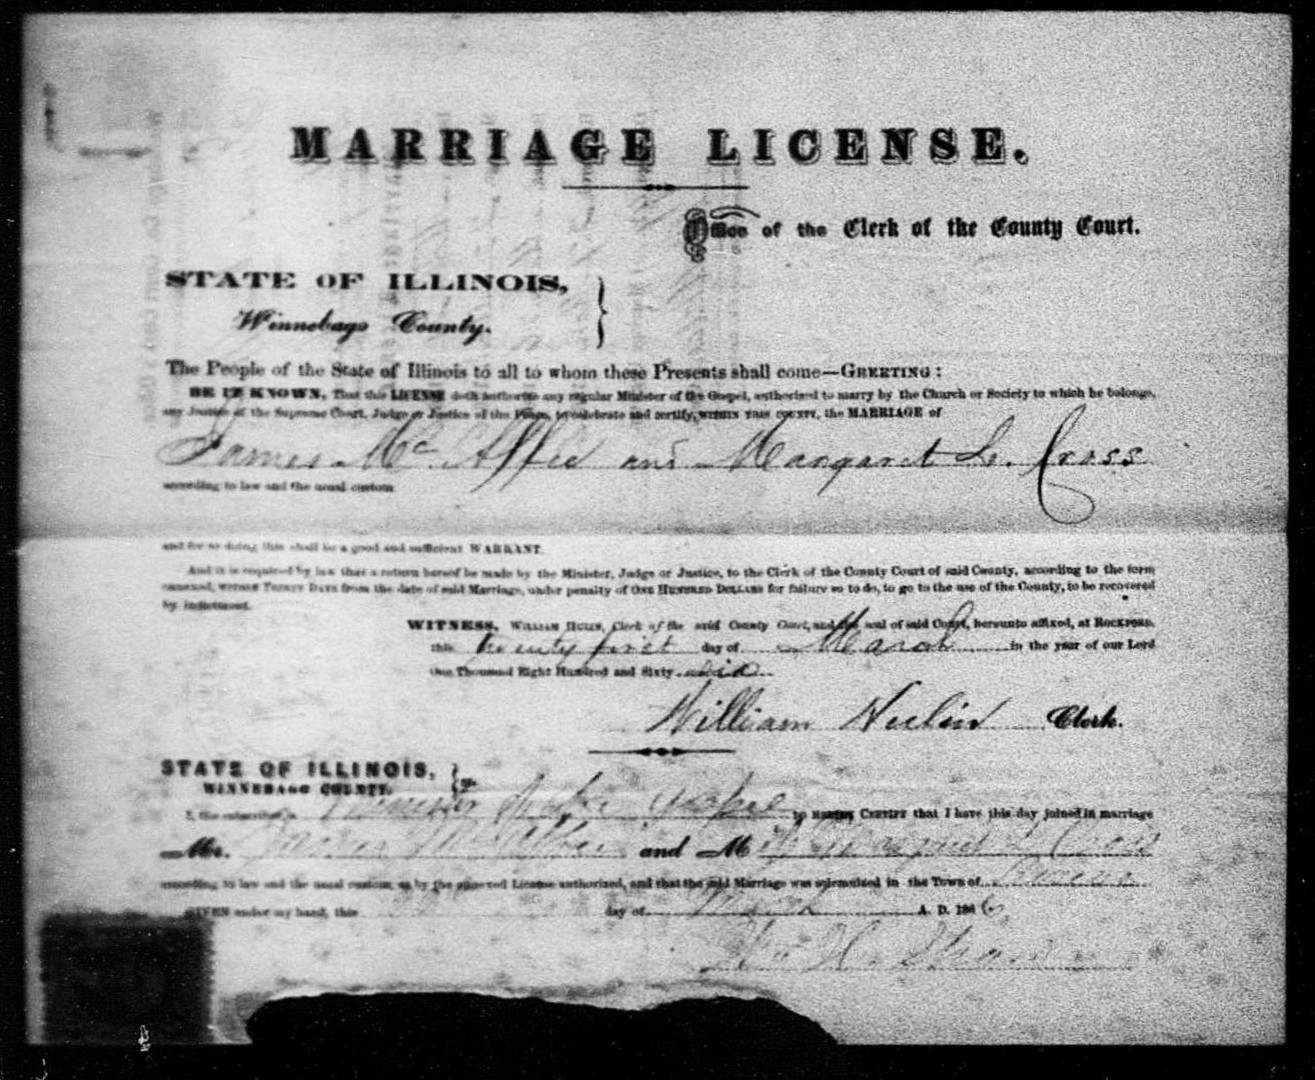 MARRIAGE LICENSE.
Office of the Clerk of the County Court.
STATE OF ILLINOIS,
Winnebago County.
The People of the State of Illinois to all to whom these Presents shall come—GREETING:
BE IT KNOWN, That this LICENSE doth authorize any regular Minister of the Gospel, authorized to marry by the Church or Society to which he belongs,
any Justice of the Supreme Court, Judge or Justice of the Peace, to celebrate and certify, WITHIN THIS COUNTY, the MARRIAGE of
James Mc Affee and Margaret L. Cross
according to law and the usual custom
and for so doing this shall be a good and sufficient WARRANT.
And it is required by law that a return hereof be made by the Minister, Judge or Justice, to the Clerk of the County Court of said County, according to the form
annexed, WITHIN THIRTY DAYS from the date of said Marriage, under penalty of ONE HUNDRED DOLLARS for failure so to do, to go to the use of the County, to be recovered
by indictment.
WITNESS, WILLIAM HULIN, Clerk of the said County Court, and the seal of said Court, hereunto affixed, at ROCKFORD,
this twenty first day of March in the year of our Lord
One Thousand Eight Hundred and Sixty six
William Hulin Clerk.
STATE OF ILLINOIS, } ss.
WINNEBAGO COUNTY.
I, the subscriber, a Minister of the Gospel do HEREBY CERTIFY that I have this day joined in marriage
Mr. James Mc Affee and M Margaret L Cross
according to law and the usual custom, as by the annexed License authorized, and that the said Marriage was solemnized in the Town of
GIVEN under my hand, this 22 day of March A. D. 1866
Wm H.